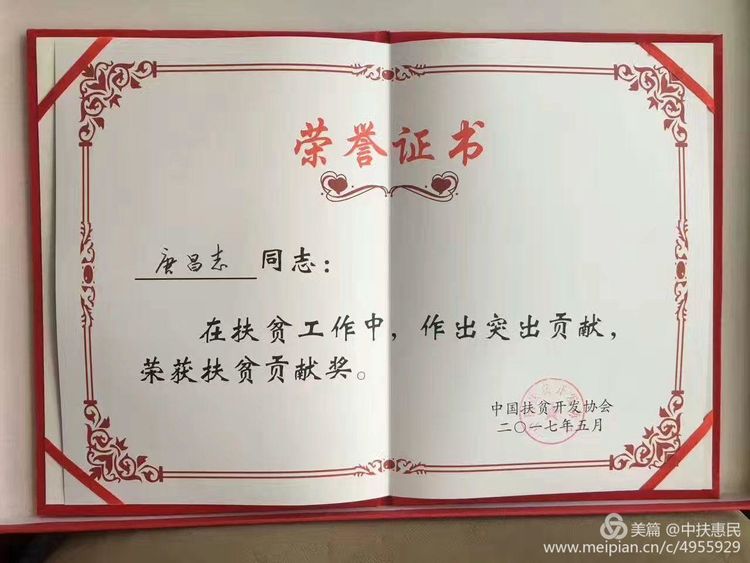 荣誉证书
唐昌志 同志：
在扶贫工作中，作出突出贡献，
荣获扶贫贡献奖。
中国扶贫开发协会
二〇一七年五月
美篇 @中扶惠民
www.meipian.cn/c/4955929